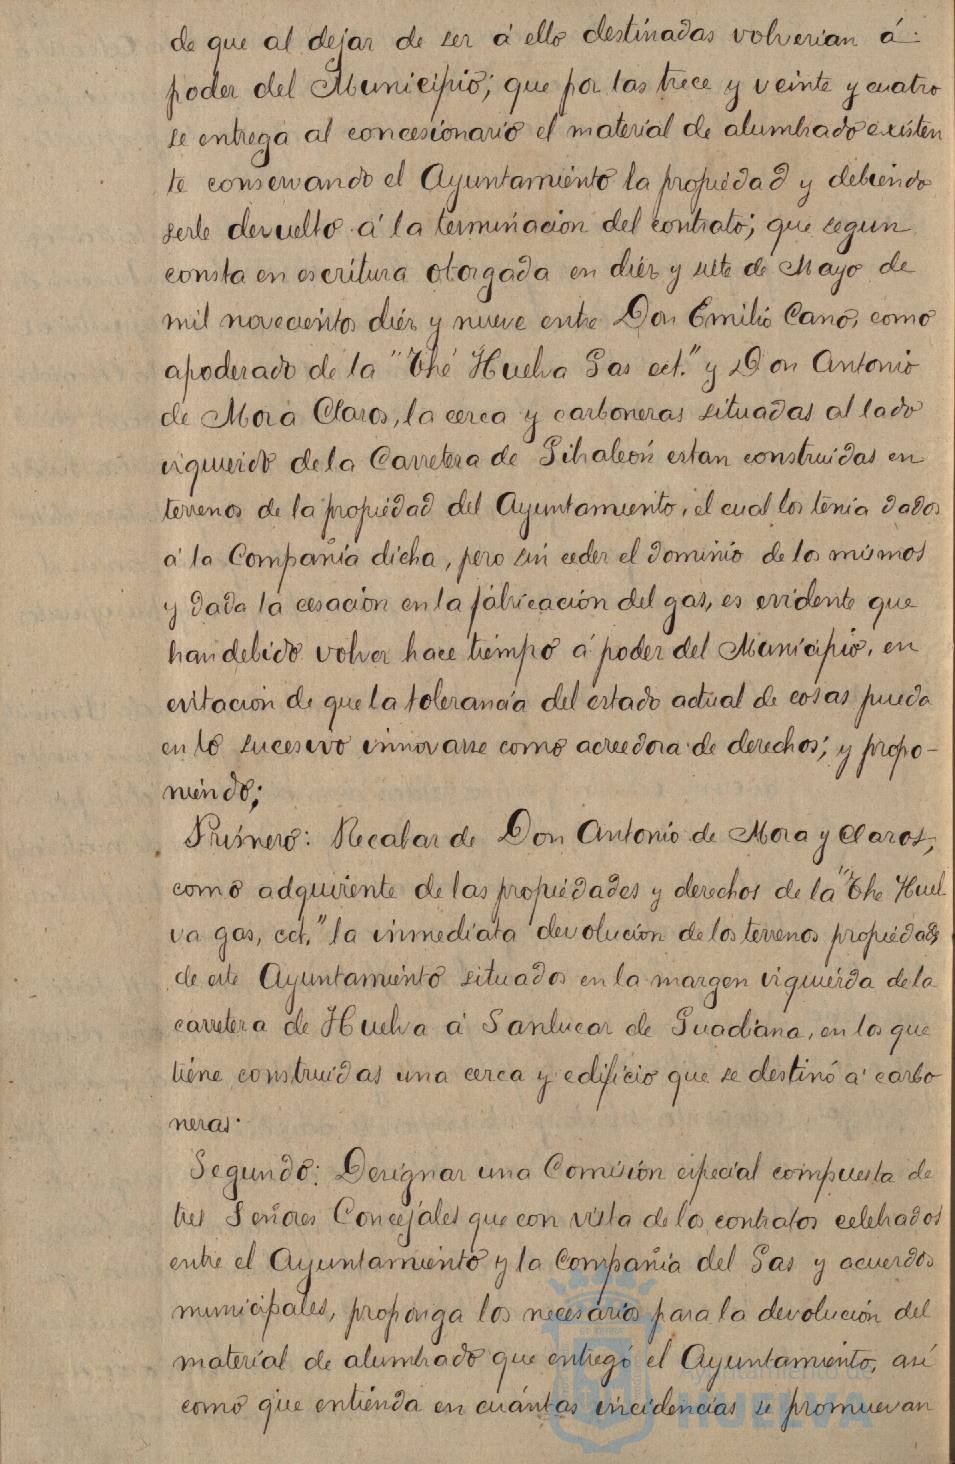 de que al dejar de ser á ello destinadas volverian á
poder del Municipio; que por las trece y veinte y cuatro
se entrega al concesionario el material de alumbrado existen
te conservando el Ayuntamiento la propiedad y debiendo
serle devuelto á la terminación del contrato; que segun
consta en escritura otorgada en diéz y siete de Mayo de
mil novecientos diéz y nueve entre Don Emilio Cano, como
apoderado de la "The Huelva Gas ect." y Don Antonio
de Mora Claros, la cerca y carboneras situadas al lado
izquierdo de la Carretera de Gibraleón estan construidas en
terrenos de la propiedad del Ayuntamiento, el cual los tenia dados
á la Compañía dicha, pero sin ceder el dominio de los mismos
y dada la cesación en la fabricación del gas, es evidente que
han debido volver hace tiempo á poder del Municipio, en
evitación de que la tolerancia del estado actual de cosas pueda
en lo sucesivo innovarse como acreedora de derechos; y propo-
niendo;
Primero: Recabar de Don Antonio de Mora y Claros,
como adquirente de las propiedades y derechos de la "The Huel-
va gas, ect." la inmediata devolución de los terrenos propiedad
de este Ayuntamiento situados en la margen izquierda de la
carretera de Huelva á Sanlucar de Guadiana, en los que
tiene construidas una cerca y edificio que se destinó á carbo
neras.
Segundo: Designar una Comisión especial compuesta de
tres Señores Concejales que con vista de los contratos celebrados
entre el Ayuntamiento y la Compañía del Gas y acuerdos
municipales, proponga los necesarios para la devolución del
material de alumbrado que entregó el Ayuntamiento, así
como que entienda en cuántas incidencias se promuevan
Ayuntamiento de
HUELVA